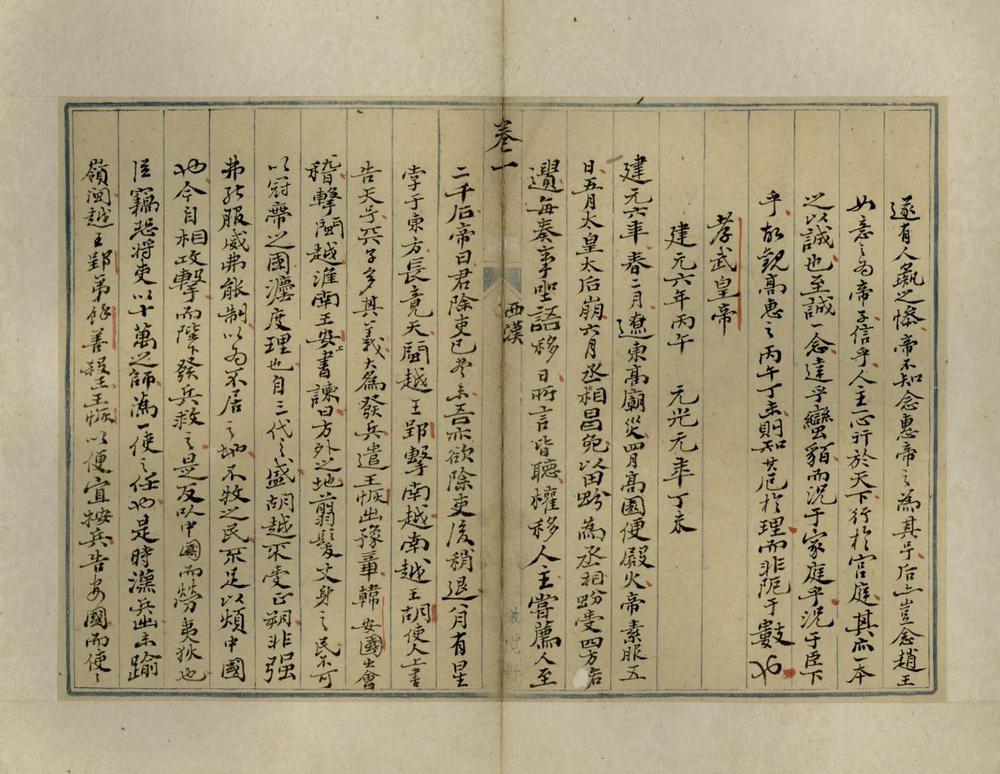 遂有人彘之慘帝不知念惠帝之為其子后亡豈念趙王
如意之為帝子信乎人主一心行於天下行於宮庭其亦一本
之以誠也至誠一念達乎蠻貊而況于家庭乎況于臣下
乎故觀高惠之丙午丁未則知其厄於理而非阨于數也
孝武皇帝
建元六年丙午　元光元年丁未
建元六年春二月遼東高廟災四月高園便殿火帝素服五
日五月太皇太后崩六月丞相昌免以田蚡為丞相蚡受四方賂
遺每奏事坐語移日所言皆聽權移人主嘗薦人至
卷一
西漢
二千石帝曰君除吏已盡未吾亦欲除吏後稍退八月有星
孛于東方長竟天閩越王郢擊南越南越王胡使人上書
告天子天子多其義大為發兵遣王恢出豫章韓安國出會
稽擊閩越淮南王安上書諫曰方外之地翦髮文身之民不可
以冠帶之國灋度理也自三代之盛胡越不受正朔非强
弗能服威弗能制以為不居之地不牧之民不足以煩中國
也今自相攻擊而陛下發兵救之是反以中國而勞夷狄也
臣竊恐將吏以十萬之師為一使之任也是時漢兵出未踰
嶺閩越王郢弟餘善殺王王恢以便宜按兵告安國而使使